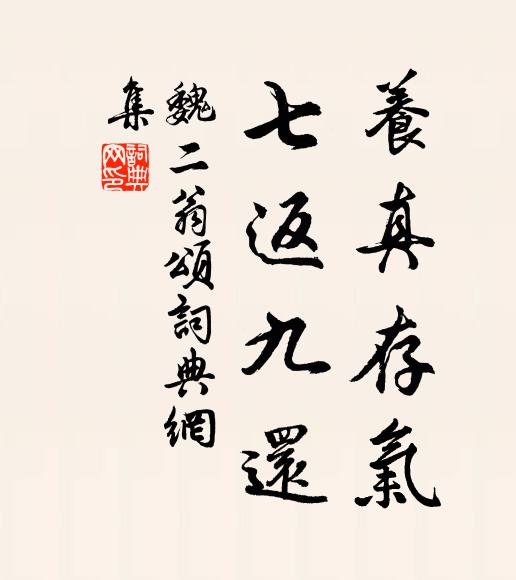 養真存氣
七返九還
魏二翁頌詞典網
集
詞典
网印